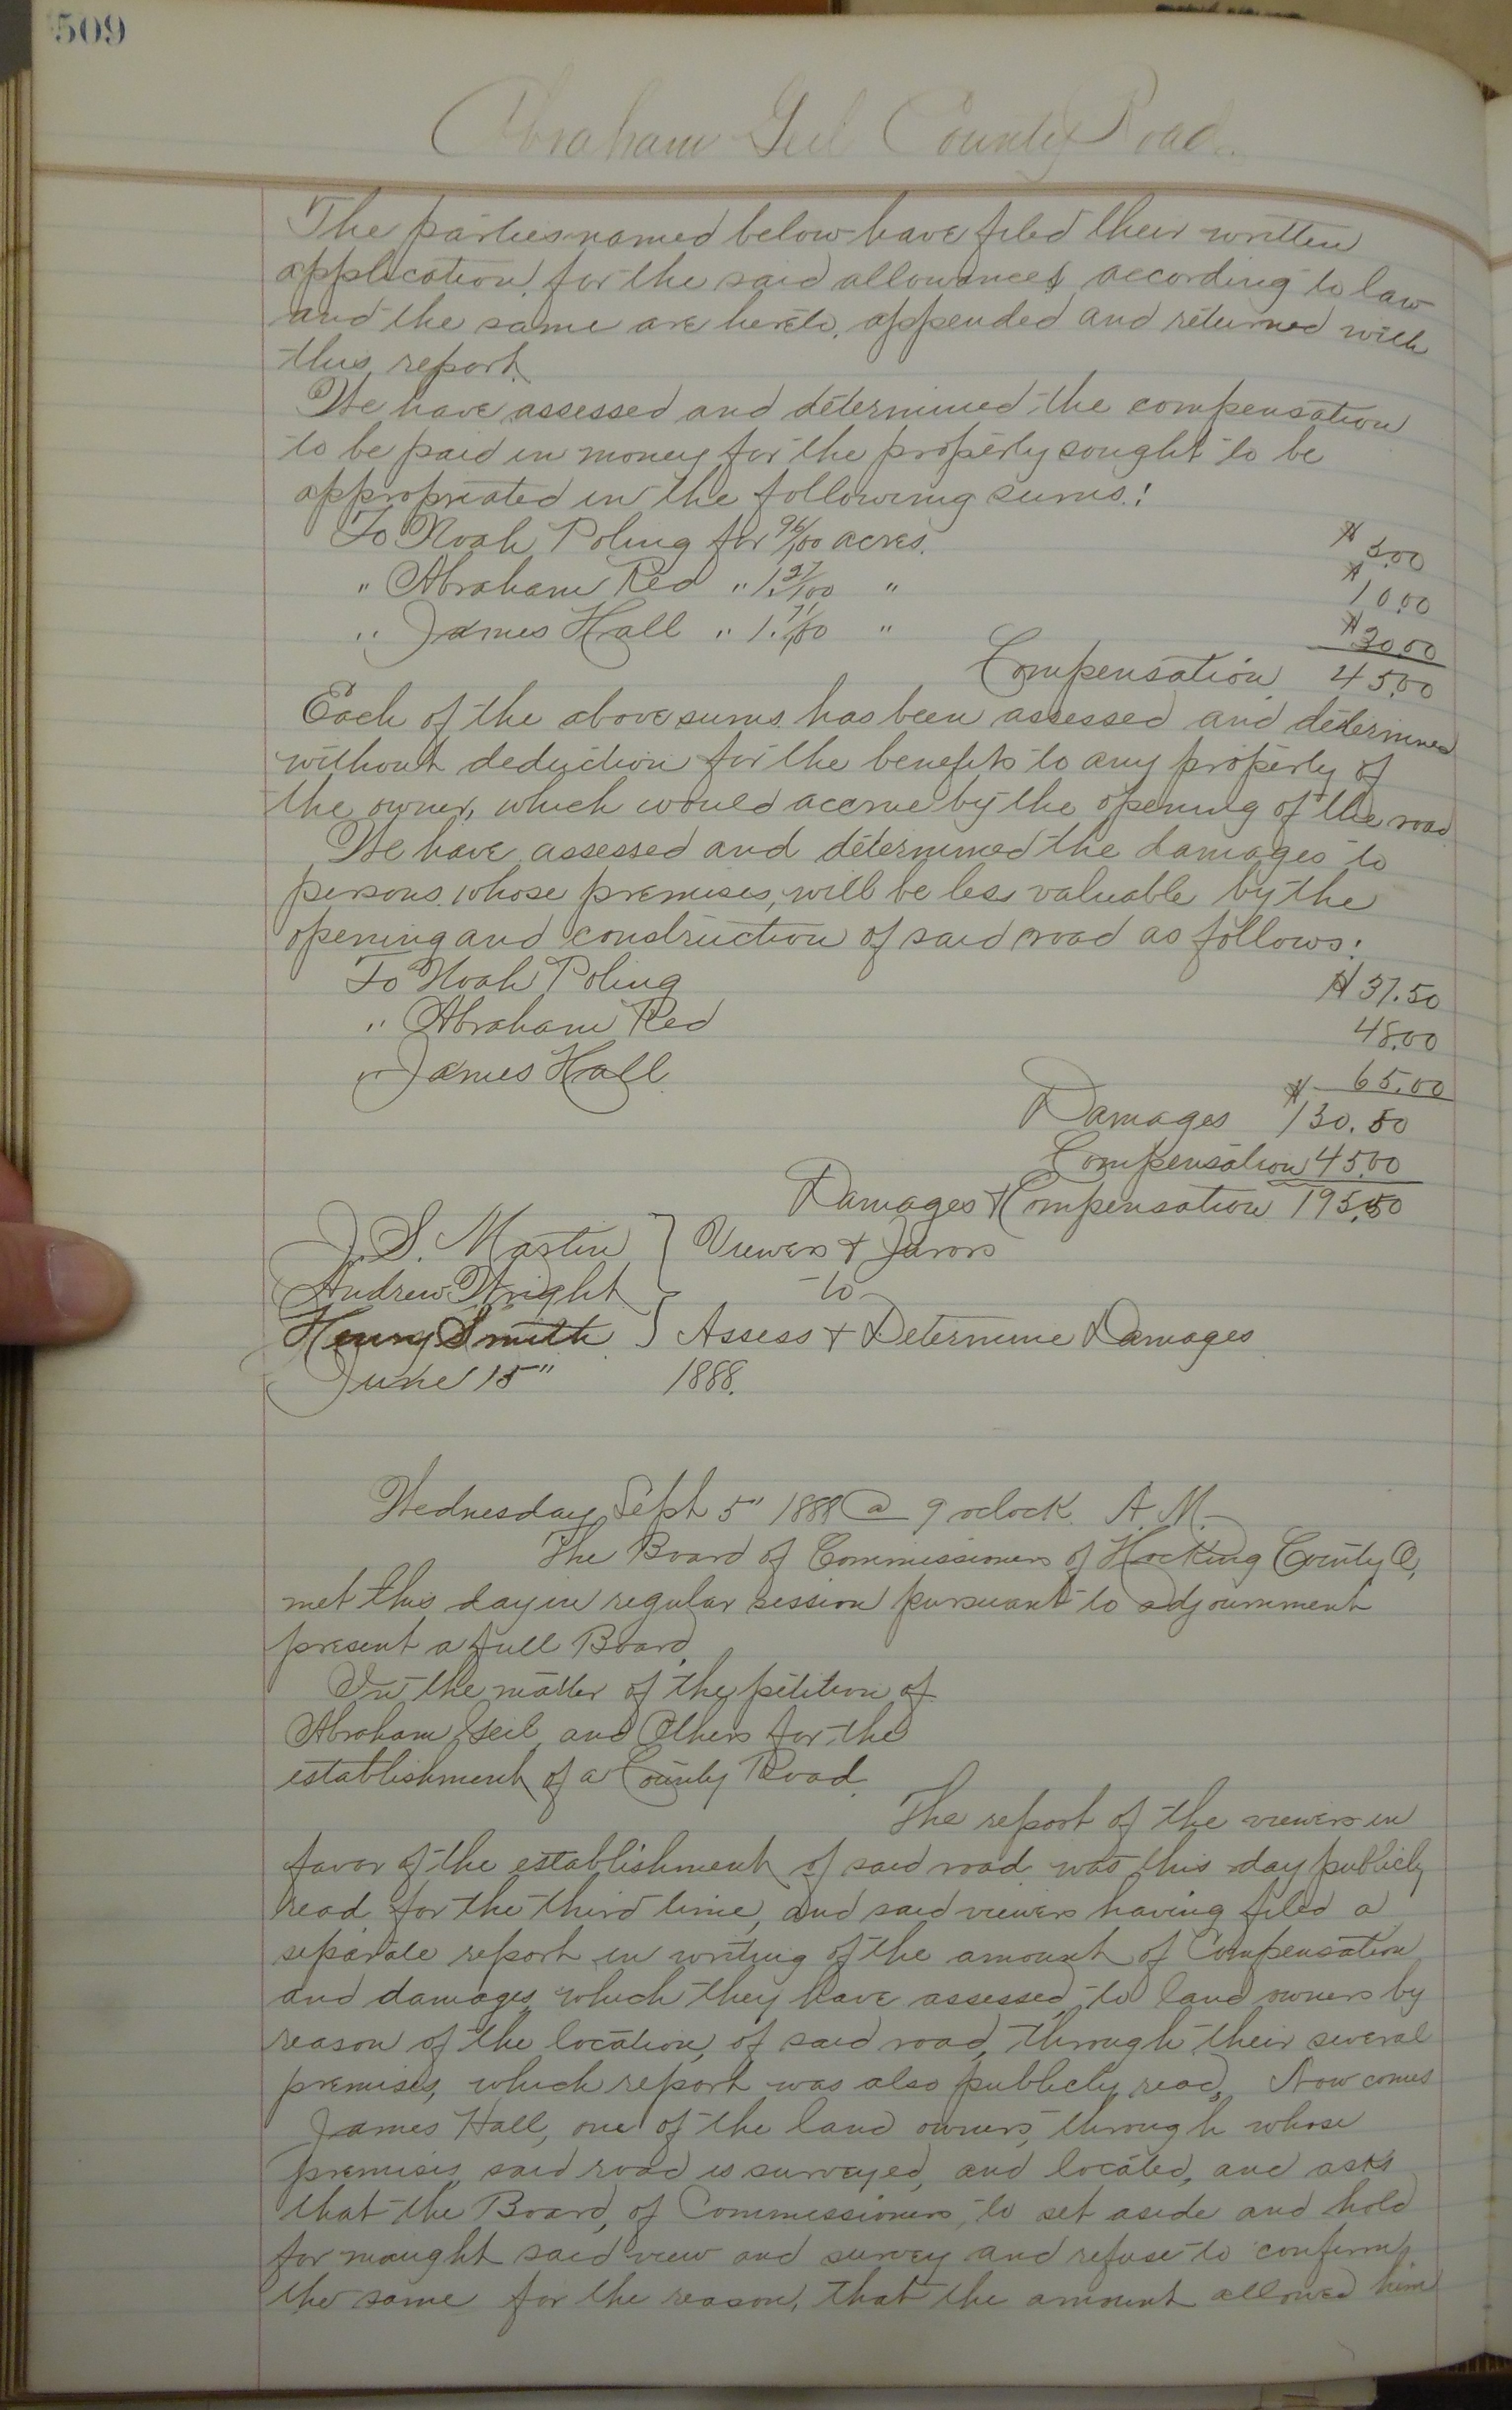 509
Abraham Geil County Road.
The parties named below have filed their written
application, for the said allowances according to law
and the same are hereto, appended and returned with
this report.
We have assessed and determined, the compensation
to be paid in money for the property sought to be
appropriated in the following sums:
To Noah Poling for 96/100 acres. $ 5.00
" Abraham Red " 1.27/100 " $ 10.00
" James Hall " 1.71/100 " $ 30.00
Compensation 45.00
Each of the above sums has been assessed and determined
without deduction for the benefits to any property of
the owner, which would accrue by the opening of the road
We have assessed and determined the damages to
persons whose premises, will be less valuable by the
opening and construction of said road as follows:
To Noah Poling $ 37.50
" Abraham Red 48.00
" James Hall 65.00
Damages $ 130.50
Compensation 45.00
Damages & Compensation 195.50
J. S. Martin } Viewers & Jurors
Andrew Wright } to
Henry Smith } Assess & Determine Damages
June 15" 1888.
Wednesday Sept 5" 1888 @ 9 oclock. A. M.
The Board of Commissioners of Hocking County O,
met this day in regular session pursuant to adjournment
present a full Board,
In the matter of the petition of
Abraham Geil and Others for the
establishment of a County Road.
The report of the viewers in
favor of the establishment of said road was this day publicly
read for the third time, and said viewers having filed a
separate report in writing of the amount of Compensation
and damages, which they have assessed to land owners by
reason of the location, of said road, through their several
premises, which report was also publicly read, Now comes
James Hall, one of the land owners, through whose
premises, said road is surveyed, and located, and asks
that the Board, of Commissioners, to set aside and hold
for naught said view and survey and refuse to confirm
the same for the reason, that the amount allowed him